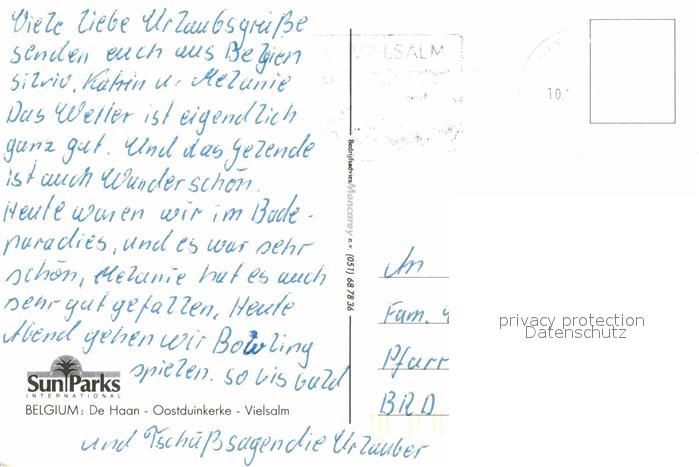 Viele liebe Urlaubsgrüße
senden euch aus Belgien
Silvio, Katrin u. Melanie
Das Wetter ist eigendlich
ganz gut. Und das Gelende
ist auch Wunderschön.
Heute waren wir im Bade-
paradies, und es war sehr
schön, Melanie hat es auch
sehr gut gefallen. Heute
Abend gehen wir Bowling
spielen. So bis bald
und Tschüß sagen die Urlauber
Sun Parks
INTERNATIONAL
BELGIUM: De Haan - Oostduinkerke - Vielsalm
Bedrijfsadvies Moncarey n.v. (051) 68 78 36
VIELSALM
10.
An
Fam.
Pfarr
BRD
privacy protection
Datenschutz